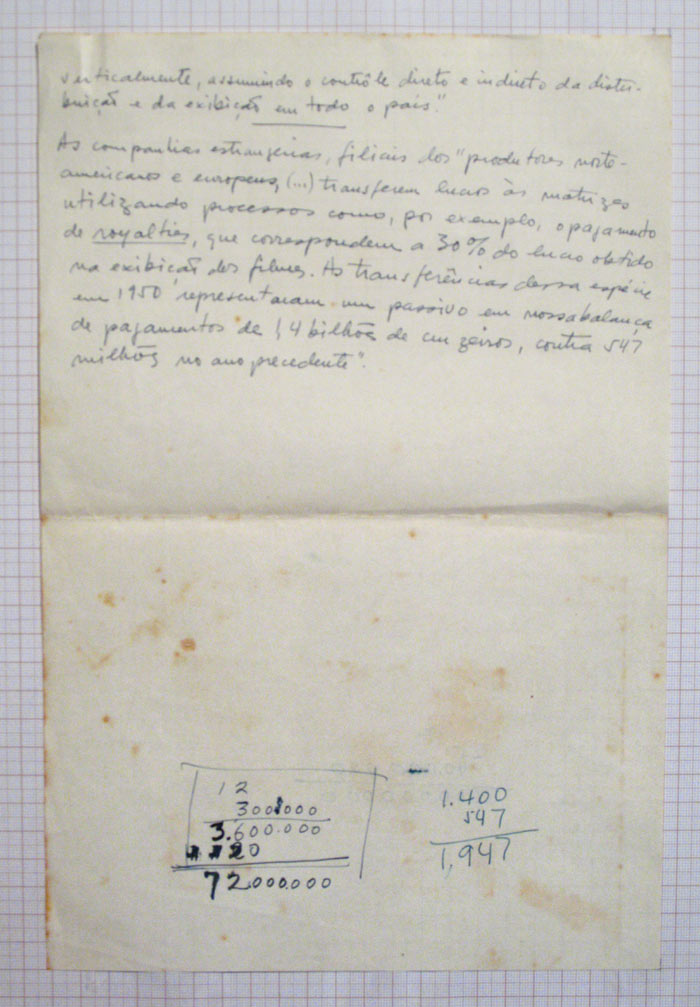 verticalmente, assumindo o contrôle direto e indireto da distri-
buição e da exibição em todo o país".
As companhias estrangeiras, filiais dos "produtores norte-
americanos e europeus, (...) transferem lucros às matrizes
utilizando processos como, por exemplo, o pagamento
de royalties, que correspondem a 30% do lucro obtido
na exibição dos filmes. As transferências dessa espécie
em 1950 representaram um passivo em nossa balança
de pagamentos de 1,4 bilhões de cruzeiros, contra 547
milhões no ano precedente".
12
300.000
3.600.000
20
72.000.000
1.400
547
1,947